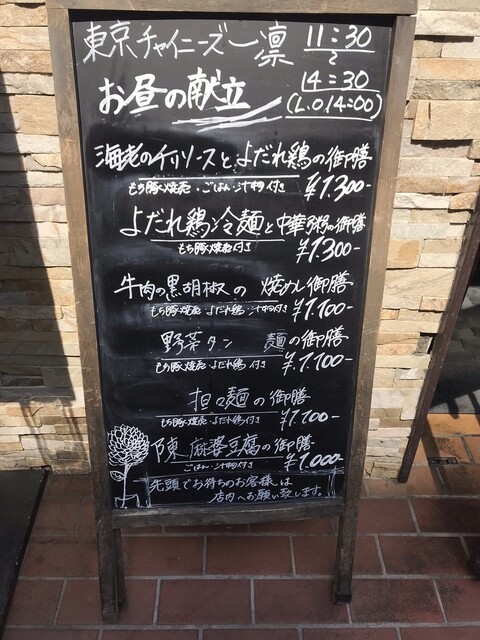 東京チャイニーズ一凛
11:30
〜
14:30
(L.O 14:00)
お昼の献立
海老のチリソースとよだれ鶏の御膳
もち豚焼売・ごはん・汁物付き
¥1.300-
よだれ鶏冷麺と中華粥の御膳
もち豚焼売付き
¥1.300-
牛肉の黒胡椒の 焼めし御膳
もち豚焼売・よだれ鶏・汁物付き
¥1.100-
野菜タン 麺の御膳
もち豚焼売・よだれ鶏付き
¥1.100-
担々麺の御膳
もち豚焼売・よだれ鶏付き
¥1.100-
陳麻婆豆腐の御膳
ごはん・汁物付き
¥1.000-
先頭でお待ちのお客様は
店内へお願い致します。